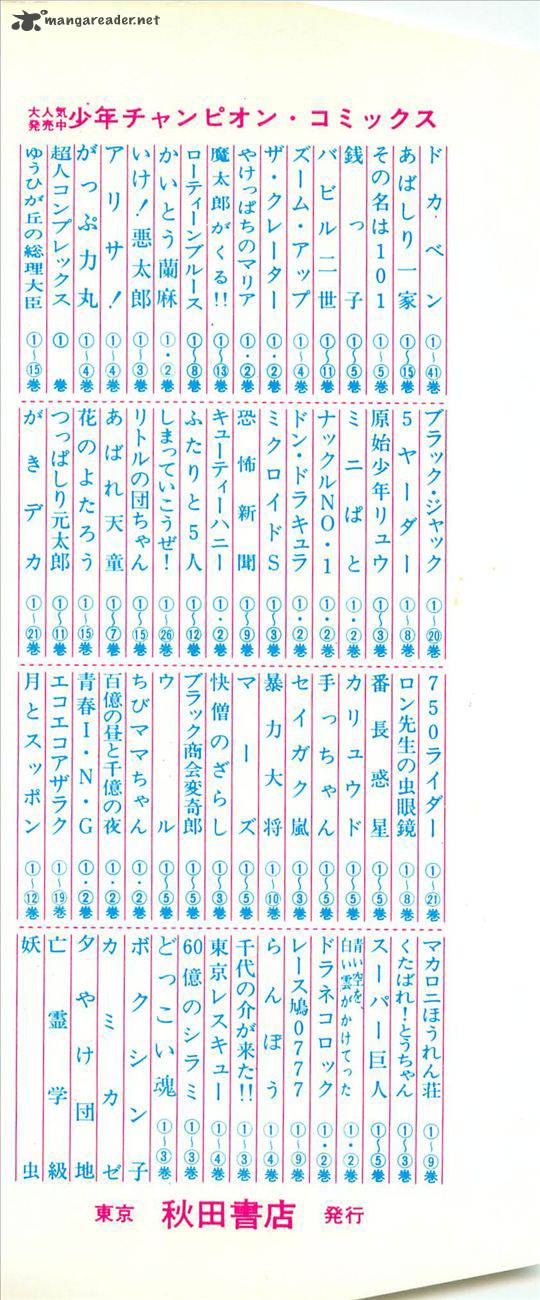 mangareader.net
大人気発売中 少年チャンピオン・コミックス
ドカベン ①〜㊶巻
あばしり一家 ①〜⑮巻
その名は101 ①〜⑤巻
銭っ子 ①〜⑤巻
バビル二世 ①〜⑪巻
ズーム・アップ ①〜④巻
ザ・クレーター ①・②巻
やけっぱちのマリア ①・②巻
魔太郎がくる!! ①〜⑬巻
ローティーンブルース ①〜⑧巻
かいとう蘭麻 ①・②巻
いけ！悪太郎 ①〜③巻
アリサ！ ①〜④巻
がっぷ力丸 ①〜④巻
超人コンプレックス ①巻
ゆうひが丘の総理大臣 ①〜⑮巻
ブラック・ジャック ①〜⑳巻
5ヤーダー ①〜⑧巻
原始少年リュウ ①〜③巻
ミニぱと ①・②巻
ナックルNO・1 ①・②巻
ドン・ドラキュラ ①・②巻
ミクロイドS ①〜③巻
恐怖新聞 ①〜⑨巻
キューティーハニー ①・②巻
ふたりと5人 ①〜⑫巻
しまっていこうぜ！ ①〜㉖巻
リトルの団ちゃん ①〜⑮巻
あばれ天童 ①〜⑦巻
花のよたろう ①〜⑮巻
つっぱしり元太郎 ①〜⑪巻
がきデカ ①〜㉑巻
750ライダー ①〜㉑巻
ロン先生の虫眼鏡 ①〜⑧巻
番長惑星 ①〜⑤巻
カリュウド ①〜⑤巻
手っちゃん ①〜⑤巻
セイガク嵐 ①〜③巻
暴力大将 ①〜⑩巻
マーズ ①〜⑤巻
快僧のざらし ①〜③巻
ブラック商会変奇郎 ①〜⑤巻
ウル ①〜⑤巻
ちびママちゃん ①・②巻
百億の昼と千億の夜 ①・②巻
青春I・N・G ①・②巻
エコエコアザラク ①〜⑲巻
月とスッポン ①〜⑫巻
マカロニほうれん荘 ①〜⑨巻
くたばれ！とうちゃん ①〜③巻
スーパー巨人 ①〜⑤巻
青い空を、白い雲がかけてった ①・②巻
ドラネコロック ①・②巻
レース鳩0777 ①〜⑨巻
らんぽう ①〜④巻
千代の介が来た!! ①〜③巻
東京レスキュー ①〜④巻
60億のシラミ ①〜③巻
どっこい魂 ①〜③巻
ボクシン子
カミカゼ
夕やけ団地
亡霊学級
妖虫
東京 秋田書店 発行